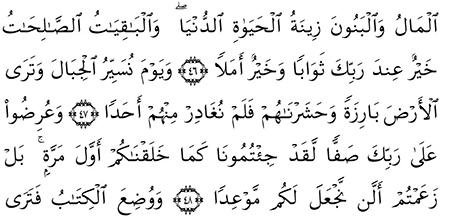 ٱلْمَالُ وَٱلْبَنُونَ زِينَةُ ٱلْحَيَوٰةِ ٱلدُّنْيَا ۖ وَٱلْبَـٰقِيَـٰتُ ٱلصَّـٰلِحَـٰتُ
خَيْرٌ عِندَ رَبِّكَ ثَوَابًا وَخَيْرٌ أَمَلًا ﴿٤٦﴾ وَيَوْمَ نُسَيِّرُ ٱلْجِبَالَ وَتَرَى
ٱلْأَرْضَ بَارِزَةً وَحَشَرْنَـٰهُمْ فَلَمْ نُغَادِرْ مِنْهُمْ أَحَدًا ﴿٤٧﴾ وَعُرِضُوا۟
عَلَىٰ رَبِّكَ صَفًّا لَّقَدْ جِئْتُمُونَا كَمَا خَلَقْنَـٰكُمْ أَوَّلَ مَرَّةٍۭ ۚ بَلْ
زَعَمْتُمْ أَلَّن نَّجْعَلَ لَكُم مَّوْعِدًا ﴿٤٨﴾ وَوُضِعَ ٱلْكِتَـٰبُ فَتَرَى